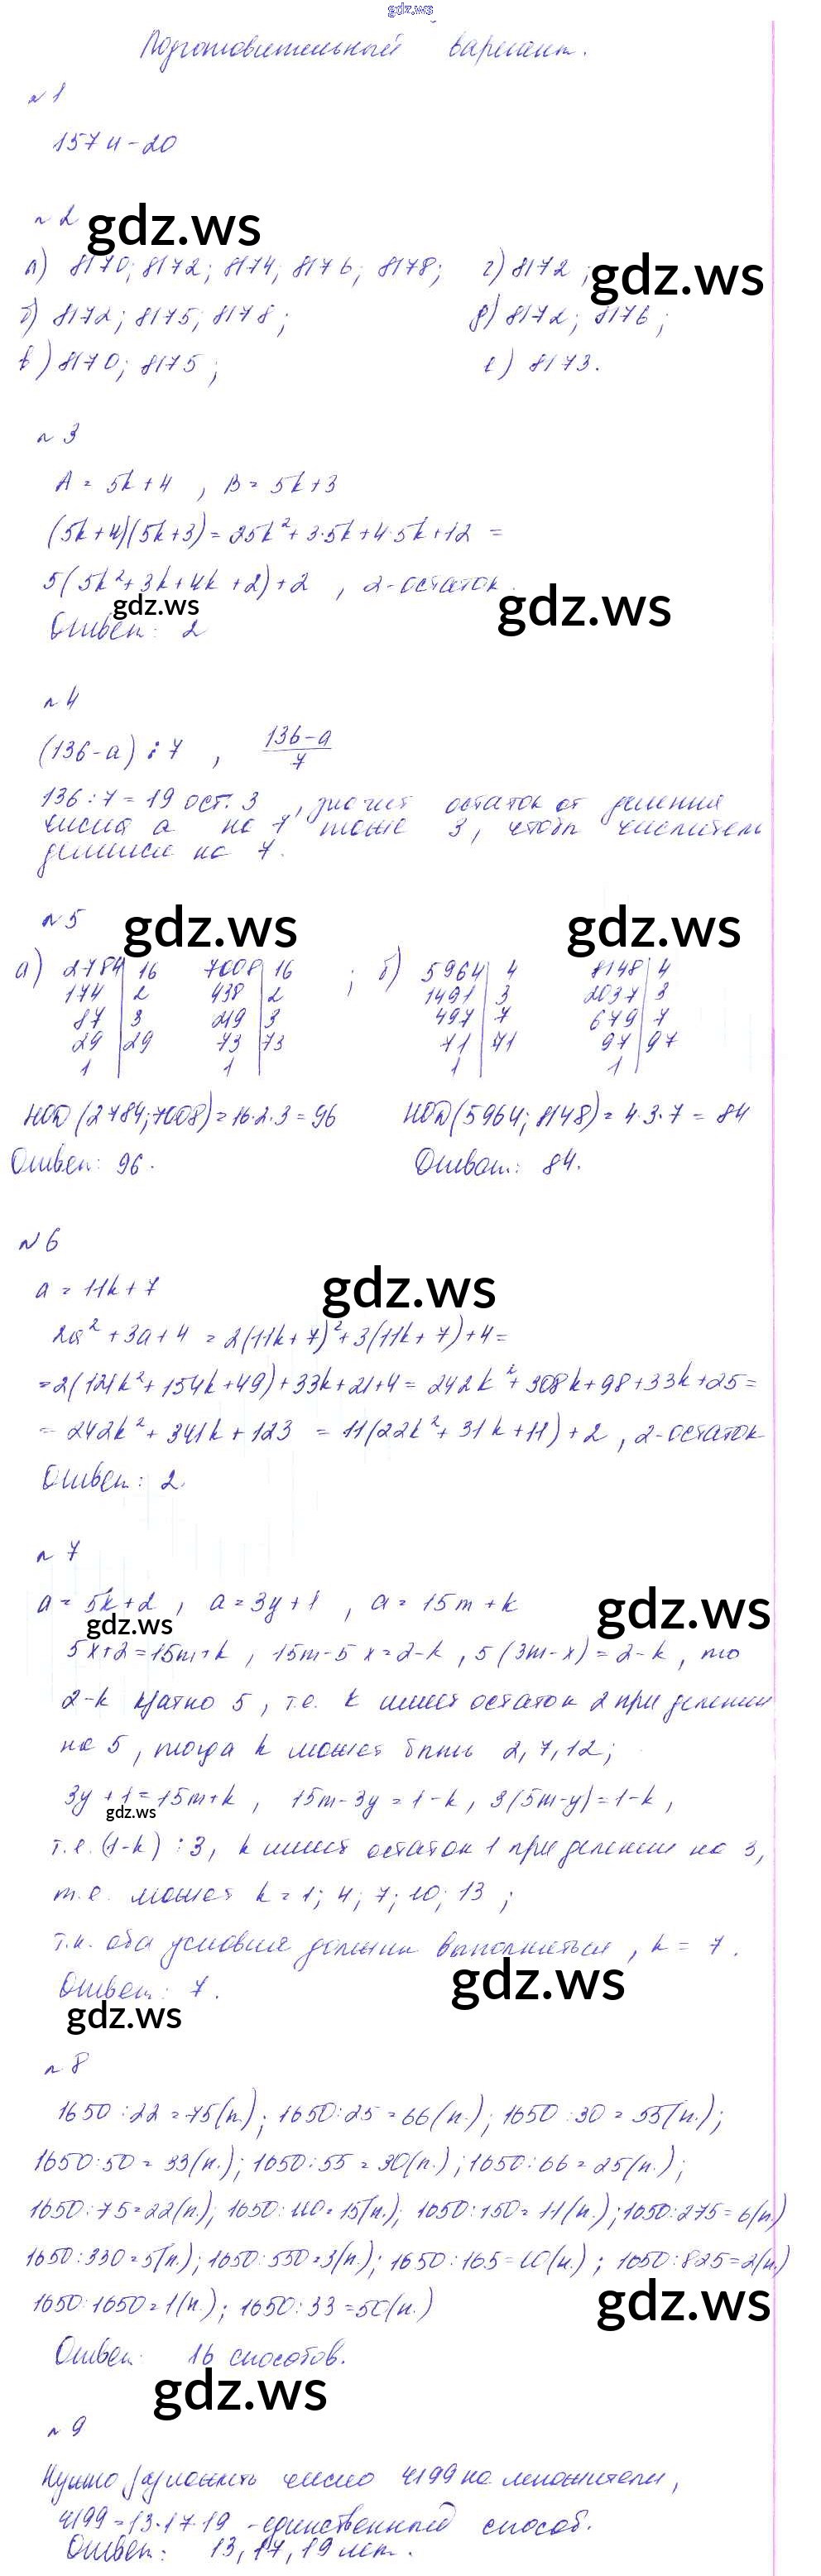 gdz.ws
Подготовительный вариант.
№1
157 и -20
№2 gdz.ws
а) 8170; 8172; 8174; 8176; 8178; г) 8172; gdz.ws
б) 8172; 8175; 8178; д) 8172; 8176;
в) 8170; 8175; е) 8173.
№3
A = 5k+4, B = 5k+3
(5k+4)(5k+3) = 25k²+3·5k+4·5k+12 =
5(5k²+3k+4k+2)+2, 2-остаток.
gdz.ws gdz.ws
Ответ: 2
№4
(136-a)⋮7, \frac{136-a}{7}
136:7=19 ост. 3, значит остаток от деления
числа a на 7 тоже 3, чтобы числитель
делился на 7.
№5 gdz.ws gdz.ws
а) 2784|16 7008|16; б) 5964|4 8148|4
174|2 438|2 1491|3 2037|3
87|3 219|3 497|7 679|7
29|29 73|73 71|71 97|97
1| 1| 1| 1|
НОД(2784;7008)=16·2·3=96 НОД(5964;8148)=4·3·7=84
Ответ: 96. Ответ: 84.
№6
a = 11k+7 gdz.ws
2a²+3a+4 = 2(11k+7)²+3(11k+7)+4=
=2(121k²+154k+49)+33k+21+4= 242k²+308k+98+33k+25=
= 242k²+341k+123 = 11(22k²+31k+11)+2, 2-остаток
Ответ: 2.
№7
a = 5k+2, a=3y+1, a=15m+k gdz.ws
gdz.ws
5x+2=15m+k, 15m-5x=2-k, 5(3m-x)=2-k, то
2-k кратно 5, т.е. k имеет остаток 2 при делении
на 5, тогда k может быть 2,7,12;
3y+1=15m+k, 15m-3y=1-k, 3(5m-y)=1-k,
gdz.ws
т.е. (1-k)⋮3, k имеет остаток 1 при делении на 3,
т.е. может k=1; 4; 7; 10; 13;
т.к. оба условия должны выполняться, k=7.
Ответ: 7. gdz.ws
gdz.ws
№8
1650:22=75(п.); 1650:25=66(п.); 1650:30=55(п.);
1650:50=33(п.); 1650:55=30(п.); 1650:66=25(п.);
1650:75=22(п.); 1650:110=15(п.); 1650:150=11(п.); 1650:275=6(п.)
1650:330=5(п.); 1650:550=3(п.); 1650:165=10(п.); 1650:825=2(п.)
1650:1650=1(п.); 1650:33=50(п.) gdz.ws
Ответ: 16 способов.
gdz.ws
№9
Нужно разложить число 4199 на множители,
4199=13·17·19 -единственный способ.
Ответ: 13, 17, 19 лет.